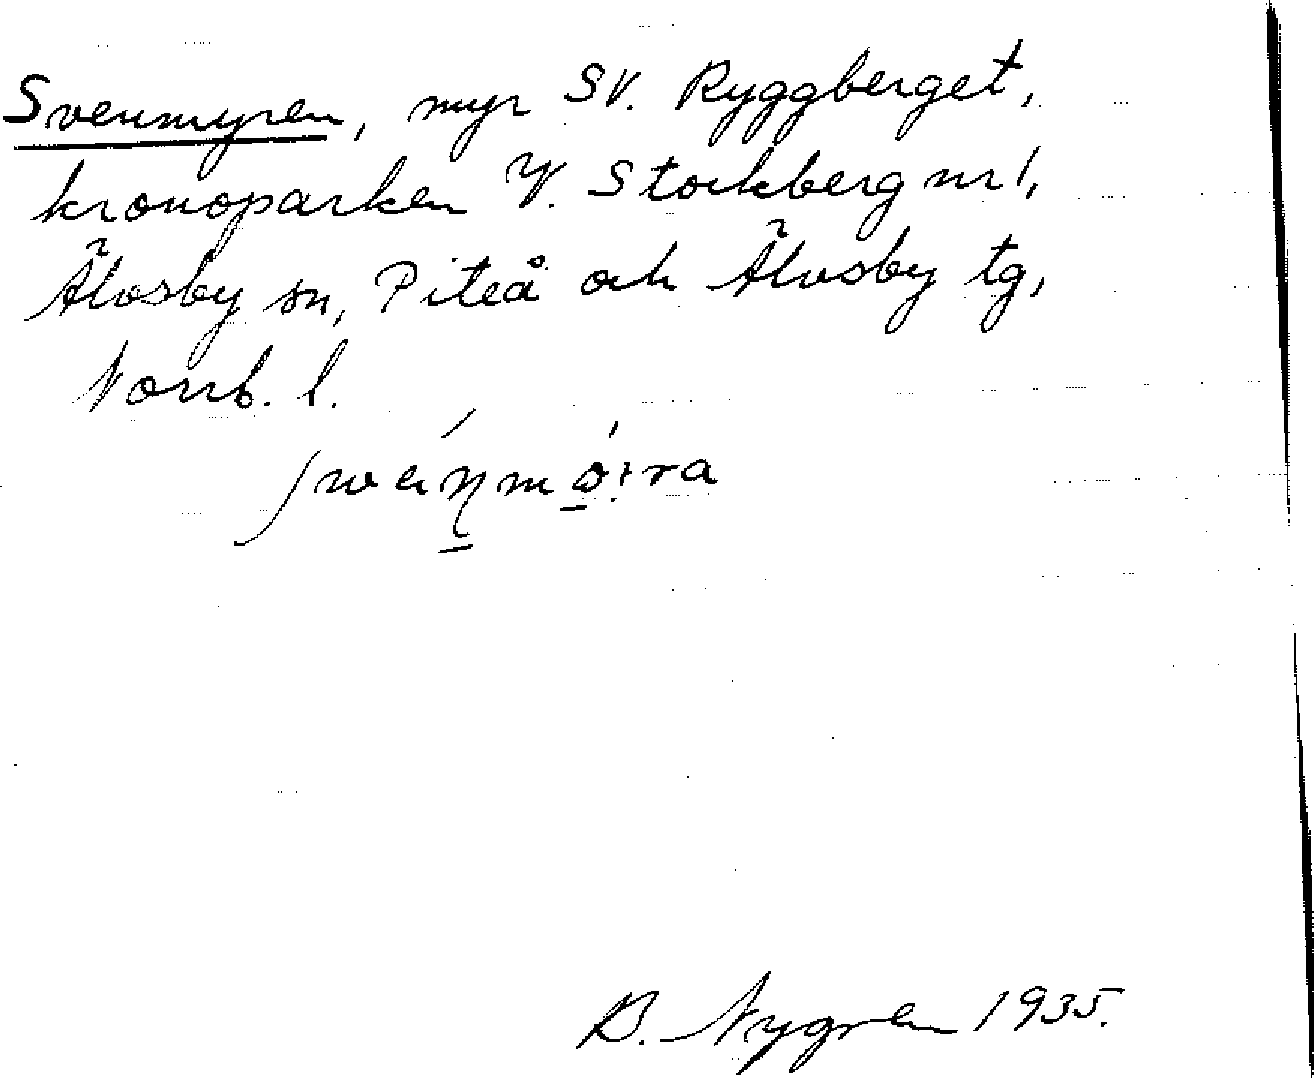 Svenmyren, myr SV. Ryggberget,
kronoparken V. Stockberg nr 1,
Älvsby sn, Piteå och Älvsby tg,
Norrb. l.
B. Nygren 1935.